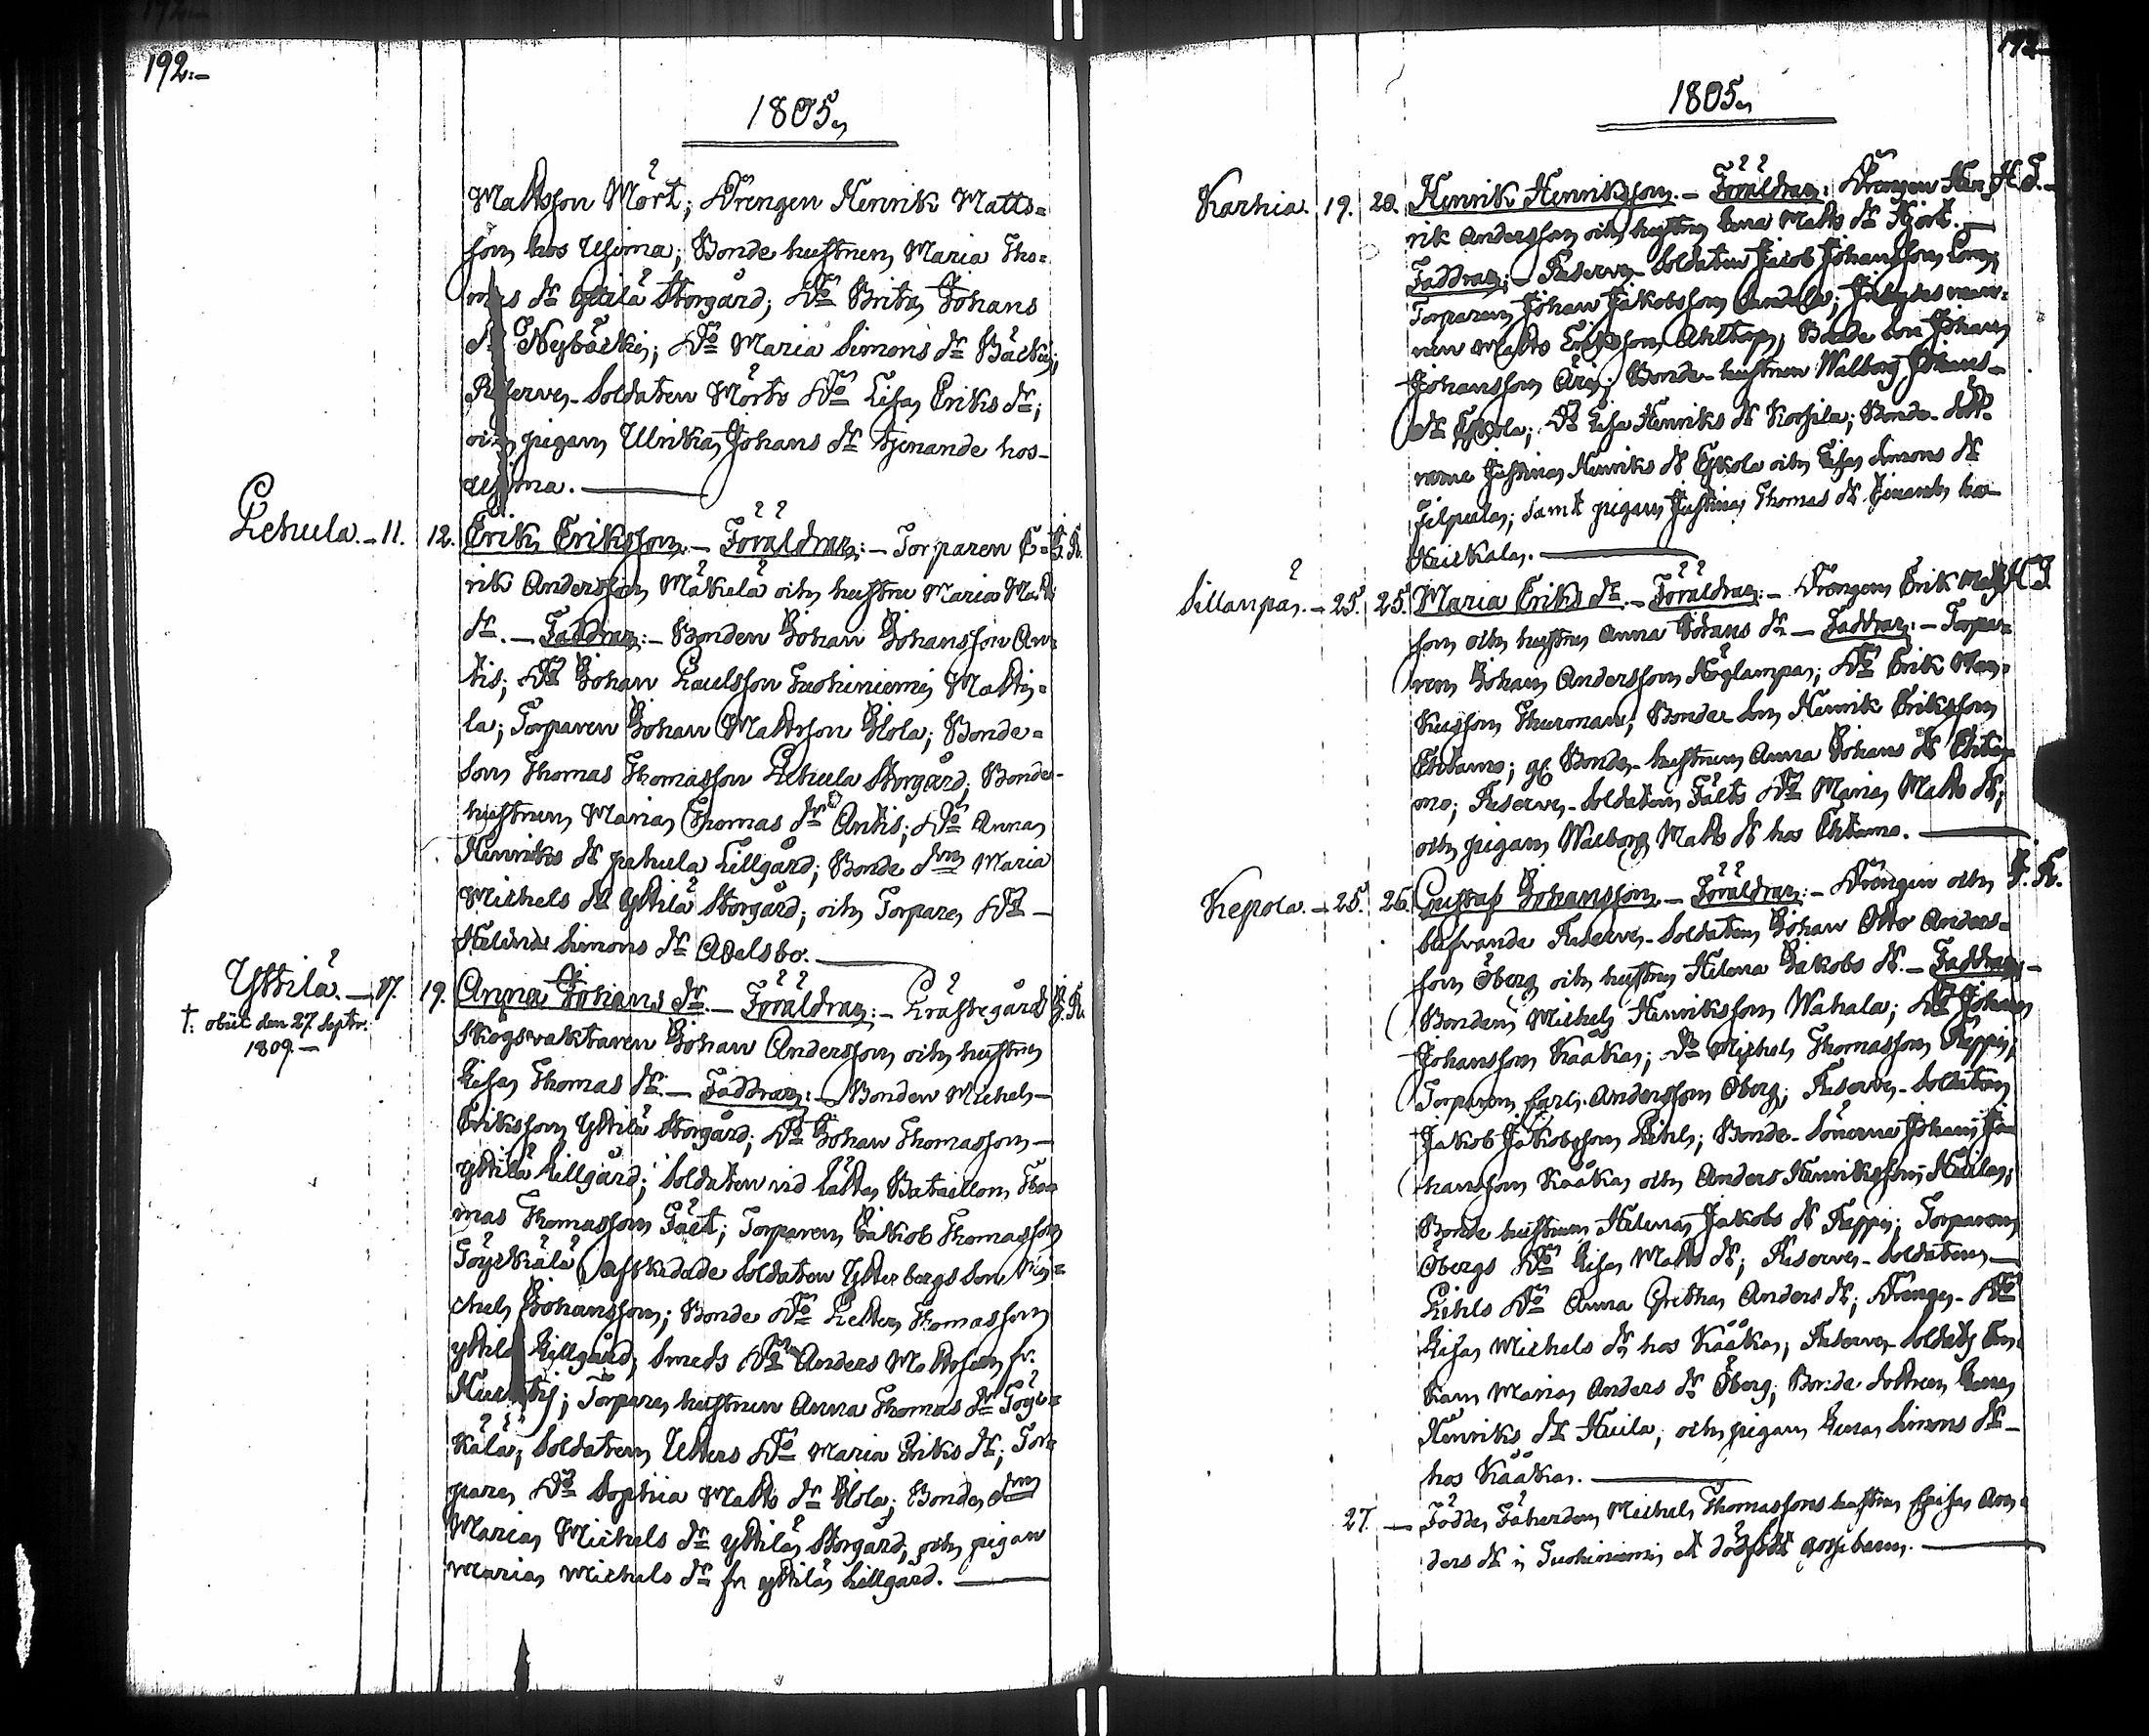 192.
1805.
Mattsson Mört; Drengen Henrik Matts=
son hos Uusima; Bonde hustrun Maria Tho=
mas dr Yttilä Storgård; Do Brita Johans
dr Nybäcki; Do Maria Simons dr Bäcki;
Reserve-Soldaten Mörts Do Lisa Eriks dr;
och pigan Ulrika Johans dr tjenande hos
Uusima.
Lehula. 11. 12. Erik Eriksson. Föräldrar: Torparen E= J. K.
rik Andersson Mäkelä och hustru Maria Matts
dr. Faddrar: Bonden Johan Johansson An=
tis; Do Johan Paulsson Matti=
la; Torparen Johan Mattsson Ylola; Bonde=
son Thomas Thomasson Lehula Storgård; Bonde
hustrun Maria Thomas dr Antis; Do Anna
Henriks dr Lehula Lillgård; Bonde drn Maria
Michels dr Yttilä Storgård; och Torpare Do
Helena Simons dr Adelsbo.
Yttilä. 17. 19. Anna Johans dr. Föräldrar: Prästegårds J. K.
†. obiit den 27. Septr.
1809.
Skogsvaktaren Johan Andersson och hustrun
Lisa Thomas dr. Faddrar: Bonden Michel
Eriksson Yttilä Storgård; Do Johan Thomasson
Yttilä Lillgård; Soldaten vid Lätta Bataillon Tho=
mas Thomasson Fält; Torparen Jakob Thomasson
Töyrkälä; afskedade Soldaten Ytterbergs Son Mi=
chel Johansson; Bonde Do Petter Thomasson
Yttilä Lillgård; Smeds Do Anders Mattsson fr.
Torpare hustrun Anna Thomas dr Töyr=
kälä; Soldatens Utters Do Maria Eriks dr; Tor=
pare Do Sophia Matts dr Ylola; Bonde drn
Maria Michels dr Yttilä Storgård, och pigan
Maria Michels dr fr Yttilä Lillgård.
1805.
Karhia. 19. 20. Henrik Henriksson. Föräldrar: Drengen Hen H. I.
rik Andersson och hustrun Lena Matts dr Hjort.
Faddrar: Reserve Soldaten Jacob Johansson
Torparen Johan Jakobsson
nen Matts Eriksson Bonde Son Johan
Johansson Äri; Bonde-hustrun Walborg Johans
dr Eskola; Do Lisa Henriks dr Korsila; Bonde-dött-
rarne Justina Henriks dr Eskola och Lisa Simons dr
Filpula; samt pigan Justina Thomas dr tjenande hos
Heickala.
Sillanpä. 25. 25. Maria Eriks dr. Föräldrar: Drengen Erik Matts H. I.
son och hustrun Anna Johans dr. Faddrar: Torpa=
ren Johan Andersson Do Erik Mar=
kusson Bonde Son Henrik Eriksson
Ehtamo; gl. Bonde-hustrun Anna Johans dr Ehta=
mo; Reserve-Soldaten Fälts Do Maria Matts dr;
och pigan Walborg Matts dr hos Ehtamo.
Kepola. 25. 26. Gustaf Johansson. Föräldrar: Drengen och J. K.
blifvande Reserve-Soldaten Johan Otto Anders=
son Öberg och hustrun Helena Jakobs dr. Faddrar:
Bonden Michel Henriksson Wahala; Do Johan
Johansson Kääkä; Do Michel Thomasson Reppi;
Torparen Carl Andersson Öberg; Reserve-Soldaten
Jakob Jakobsson Lihls; Bonde-Sönerne Johan Jo=
hansson Kääkä och Anders Henriksson Huila;
Bonde hustrun Helena Jakobs dr Reppi; Torparen
Öbergs Do Lisa Matts dr; Reserve-Soldatens
Lihls Do Anna Gretha Anders dr; Drenge-Do
Lisa Michels dr hos Kääkä; Reserve-Soldats En=
kan Maria Anders dr Öberg; Bonde dottren Lena
Henriks dr Huila; och pigan Simons dr
hos Kääkä.
27. Födde Fäherden Michel Thomassons hustru Caisa An=
ders dr i ett dödfödt gossebarn.